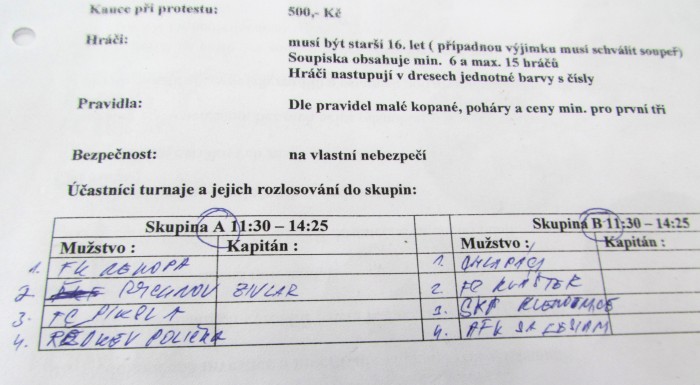 Kauce při protestu: 500,- Kč
Hráči: musí být starší 16. let ( případnou výjimku musí schválit soupeř)
Soupiska obsahuje min. 6 a max. 15 hráčů
Hráči nastupují v dresech jednotné barvy s čísly
Pravidla: Dle pravidel malé kopané, poháry a ceny min. pro první tři
Bezpečnost: na vlastní nebezpečí
Účastníci turnaje a jejich rozlosování do skupin:
Skupina A 11:30 – 14:25 Skupina B 11:30 – 14:25
Mužstvo : Kapitán : Mužstvo : Kapitán :
1. FK 1.
2. 2. FC KLÁŠTER
3. FC 3. SKP
4. POLIČKA 4. AFK